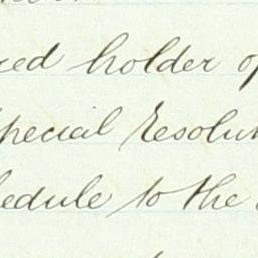 red holder of
special Resolut
hedule to the